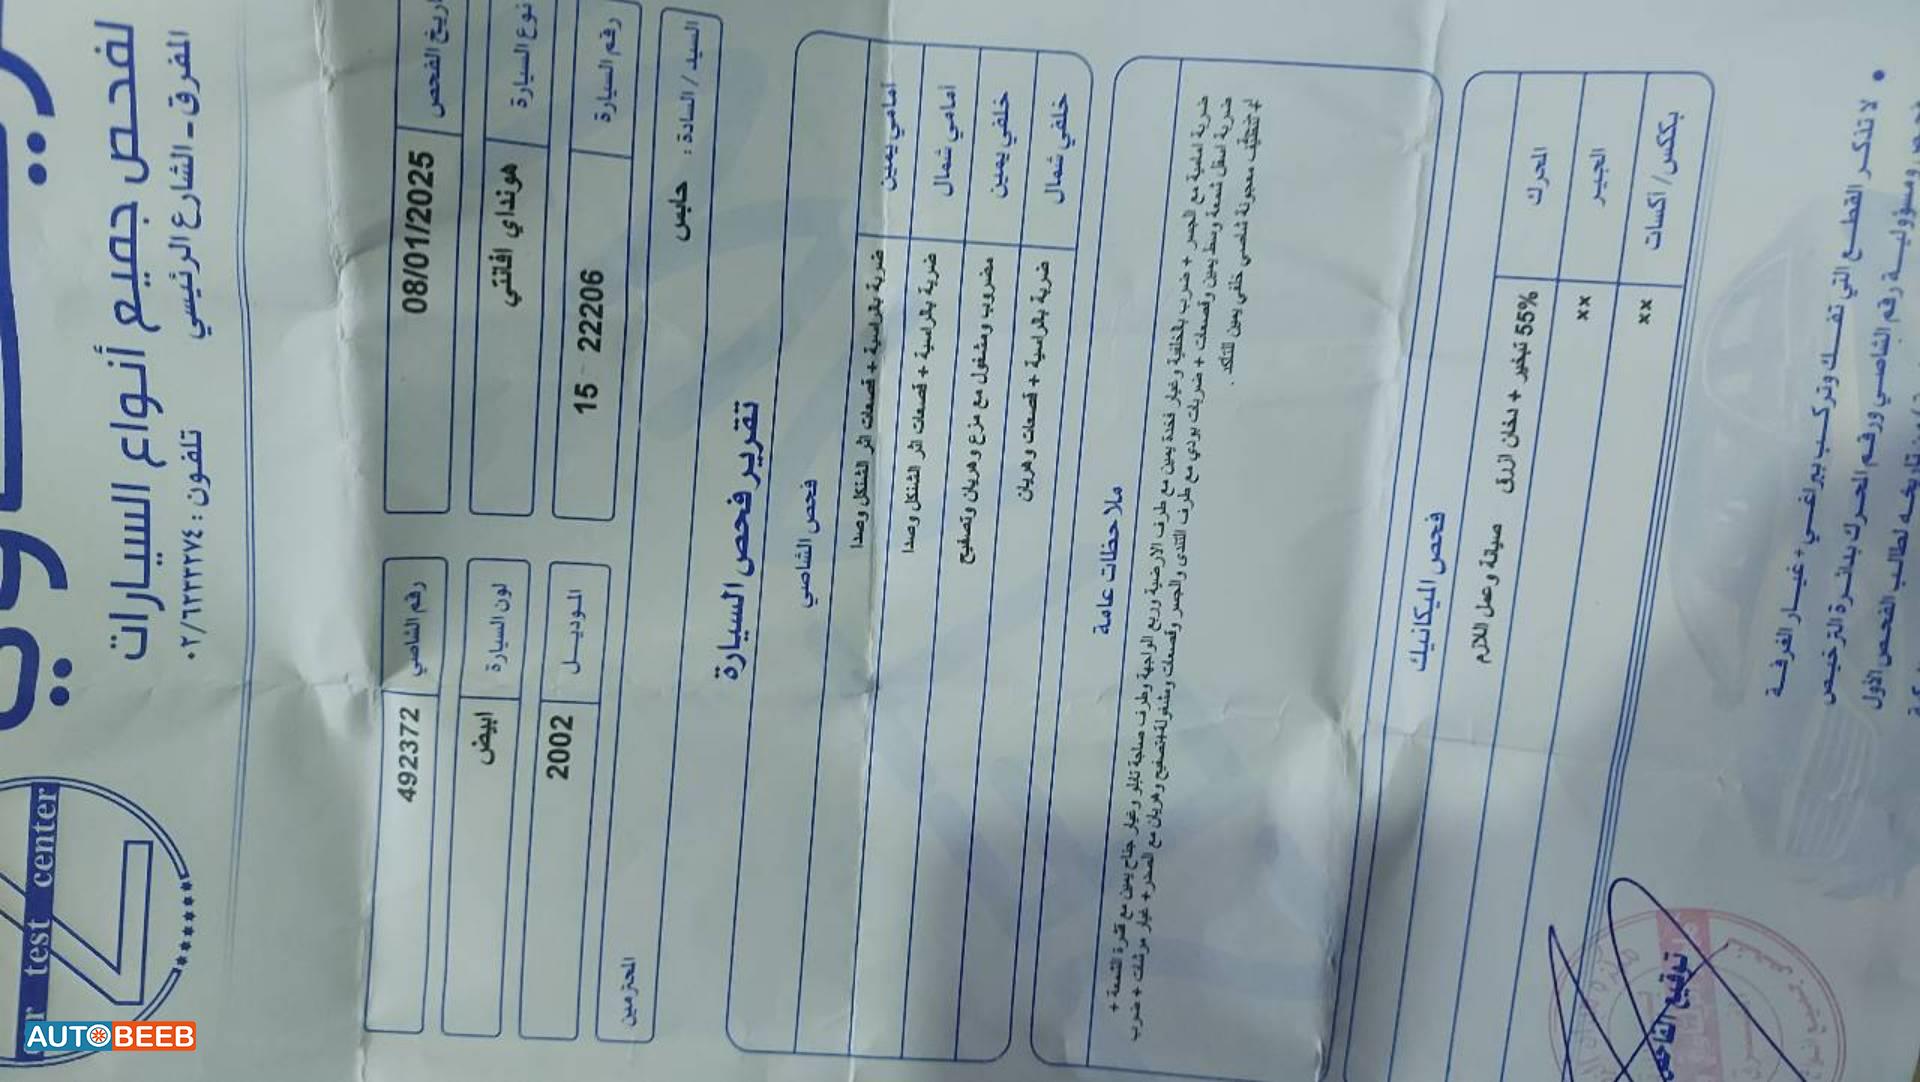 لفحص جميع أنواع السيارات
المفرق - الشارع الرئيسي
تلفون : ٠٢/٦٢٣٢٣٧٤
test center
تاريخ الفحص 08/01/2025
رقم الشاصي 492372
نوع السيارة هونداي افانتي
لون السيارة ابيض
رقم السيارة 15 - 22206
الموديل 2002
السيد / السادة : حابس المحترمين
تقرير فحص السيارة
فحص الشاصي
أمامي يمين ضربة بالراسية + قصعات اثر الشنكل وصدا
أمامي شمال ضربة بالراسية + قصعات اثر الشنكل وصدا
خلفي يمين مضروب ومشغول مع مزع وهريان وتصفيح
خلفي شمال ضربة بالراسية + قصعات وهريان
ملاحظات عامة
ضربة امامية مع الجسر + ضرب بالخلفية وغيار فخدة يمين مع طرف الارضية وربع الواجهة وطرف صاجة تابلو وغيار جناح يمين مع قفزة الشمعة +
ضربة اسفل شمعة وسط يمين وقصعات + ضربات بودي مع طرف التندي والجسر وقصعات ومشغولة + تصفيح وهريان مع الصدر + غيار مرشات + ضرب
لم تنظيف معجونة شاصي خلفي يمين للتأكد .
فحص الميكانيك
المحرك 55% تبخير + دخان ازرق صيانة وعمل اللازم
الجير xx
بككس / أكسات xx
• لا تذكر القطع التي تفك وتركب ببراغي + غيار الغرفة
ومسؤولية رقم الشاصي ورقم المحرك بدائرة الترخيص
تاريخه لطالب الفحص الأول
توقيع الفاحص
AUTOBEEB